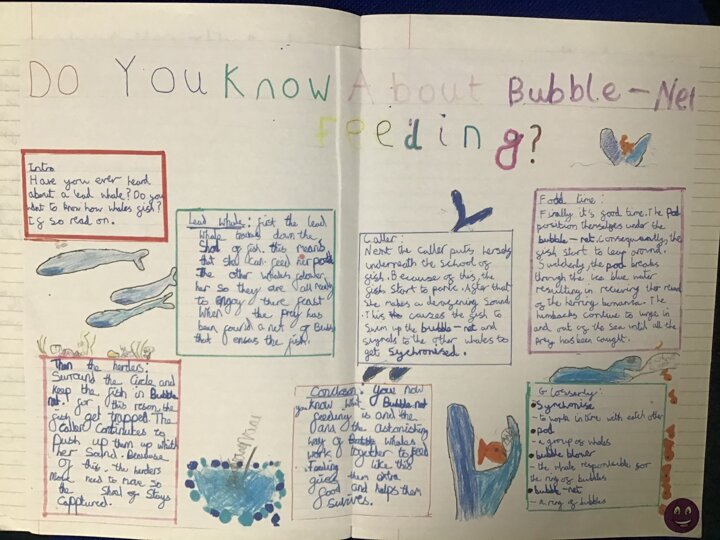 Do You Know About Bubble-Net
Feeding?
Intro
Have you ever heard
about a lead whale? Do you
want to know how whales fish?
If so read on.
Lead Whale: first the lead
whale down the
Shoal of fish. this means
that she can feed her pod.
The other whales follow
her so they are all ready
to enjoy there feast
When the prey has
been found a net of Bubble
that ensures the fish.
Caller:
Next the caller puts herself
underneath the school of
fish. Because of this the
fish start to panic. After that
she makes a deafening sound.
This causes the fish to
Swim up the bubble-net and
signals to the other whales to
get Sychronised.
Food time:
Finally it's food time. The Pod
position themselves under the
bubble-net. Consequently, the
fish start to leap around.
Suddenly, the pod breaks
through the ice blue water
resulting in recieving ther reward
of the herring bonanza. The
humbacks continue to lunge in
and out of the sea until all the
prey has been caught.
Then the herders:
Surround the circle and
keep the fish in Bubble
net. for this reson the
fish get trapped. The
caller continues to
Push up them up with
her Sound. Because
Of this, the herders
need to move so
the Shoal of Stays
Capptured.
Conclusion: You now
know what Bubble-net
feeding is and the
astonishing
way of Bubble whales
work together to feed
Feeding like this
gives them extra
food and helps them
survives.
Glossary:
Synchonise
- to work in time with eatch other
pod
- a group of whales
bubble blower
- the whale responsible for
the ring of bubbles
bubble-net
- a ring of bubbles